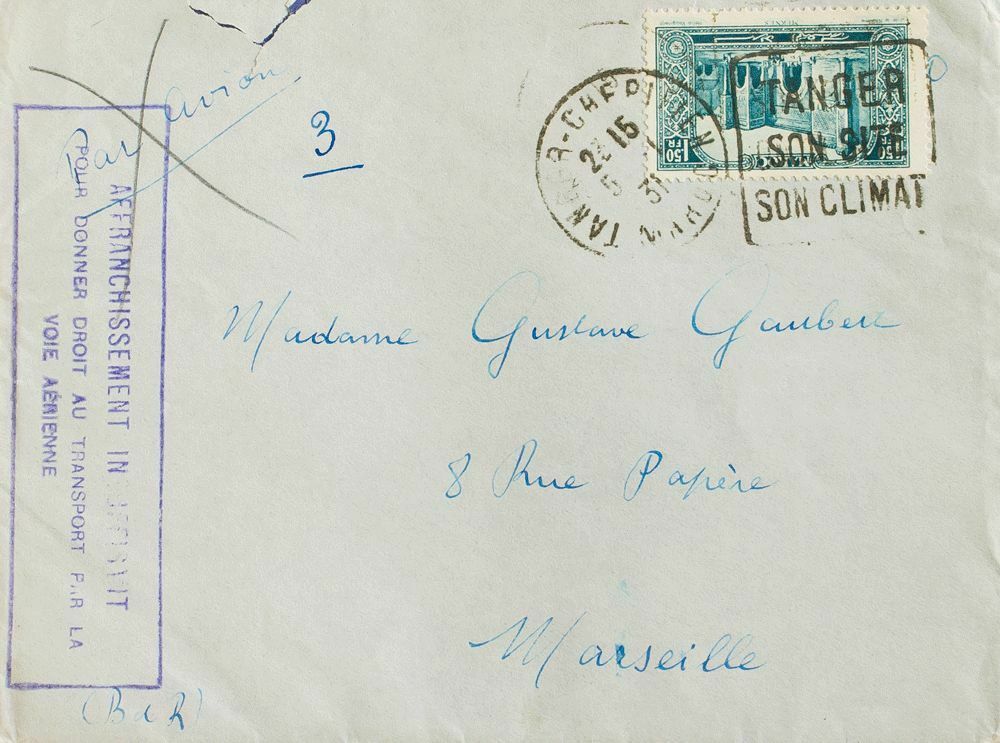 Par Avion
3
TANGER-CHERIFIEN
23 15
5
31
MAROC
TANGER
SON SITE
SON CLIMAT
1.50 FR
1.50 FR
MEKNÈS
AFFRANCHISSEMENT INSUFFISANT
POUR DONNER DROIT AU TRANSPORT PAR LA
VOIE AÉRIENNE
Madame Gustave Gaubert
8 Rue Papère
Marseille
(B d R)